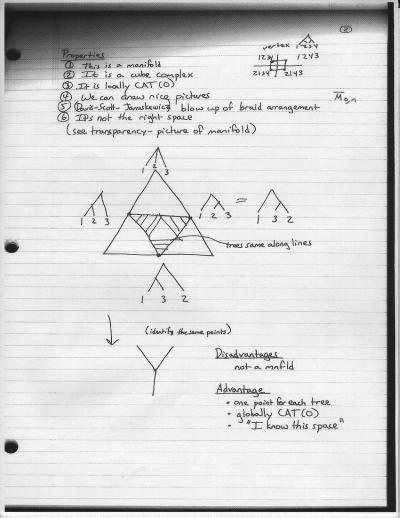 ②
Properties
① This is a manifold
② It is a cube complex
③ It is locally CAT(0)
④ We can draw nice pictures
⑤ Davis-Scott-Januskewicz blow up of braid arrangement
⑥ It's not the right space
(see transparency- picture of manifold)
vertex 1 2 3 4
1234 1243
2134 2143
M̅₀,ₙ
1 2 3
1 2 3
1 2 3 = 1 3 2
trees same along lines
1 3 2
(identify the same points)
Disadvantages
not a mnfld
Advantage
• one point for each tree
• globally CAT(0)
• "I know this space"